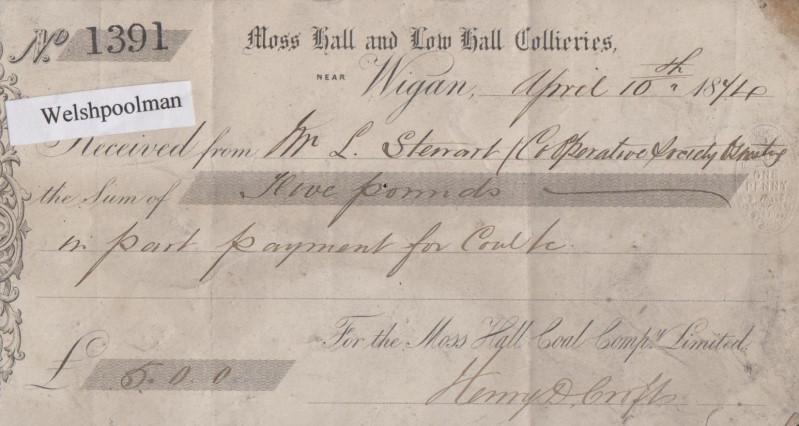 No 1391
Moss Hall and Low Hall Collieries,
NEAR Wigan, April 10th 1874
Welshpoolman
Received from Mr L. Stewart (Cooperative Society
ONE PENNY
the Sum of Five pounds
in part payment for Coal &c
For the Moss Hall Coal Compy. Limited.
£ 5.0.0
Henry D. Croft